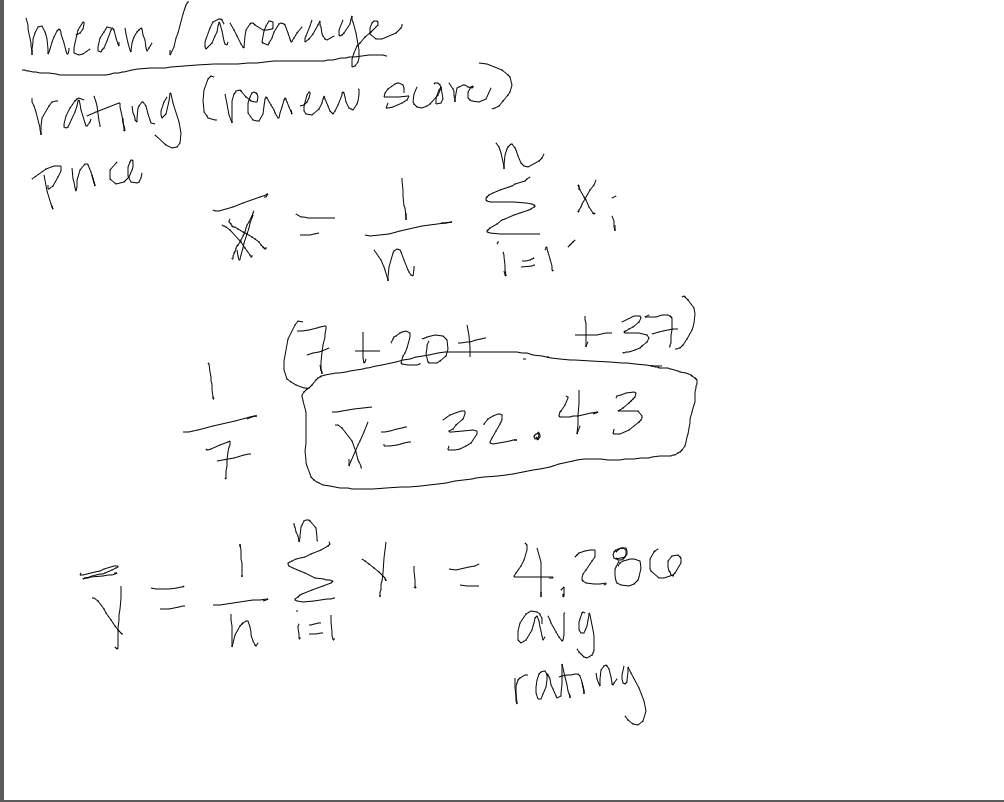 mean / average
rating (review score)
price
x̄ = 1/n n Σ i=1 xi
1/7 (7 + 20 + + 37)
x̄ = 32.43
ȳ = 1/n n Σ i=1 yi = 4.286
avg
rating